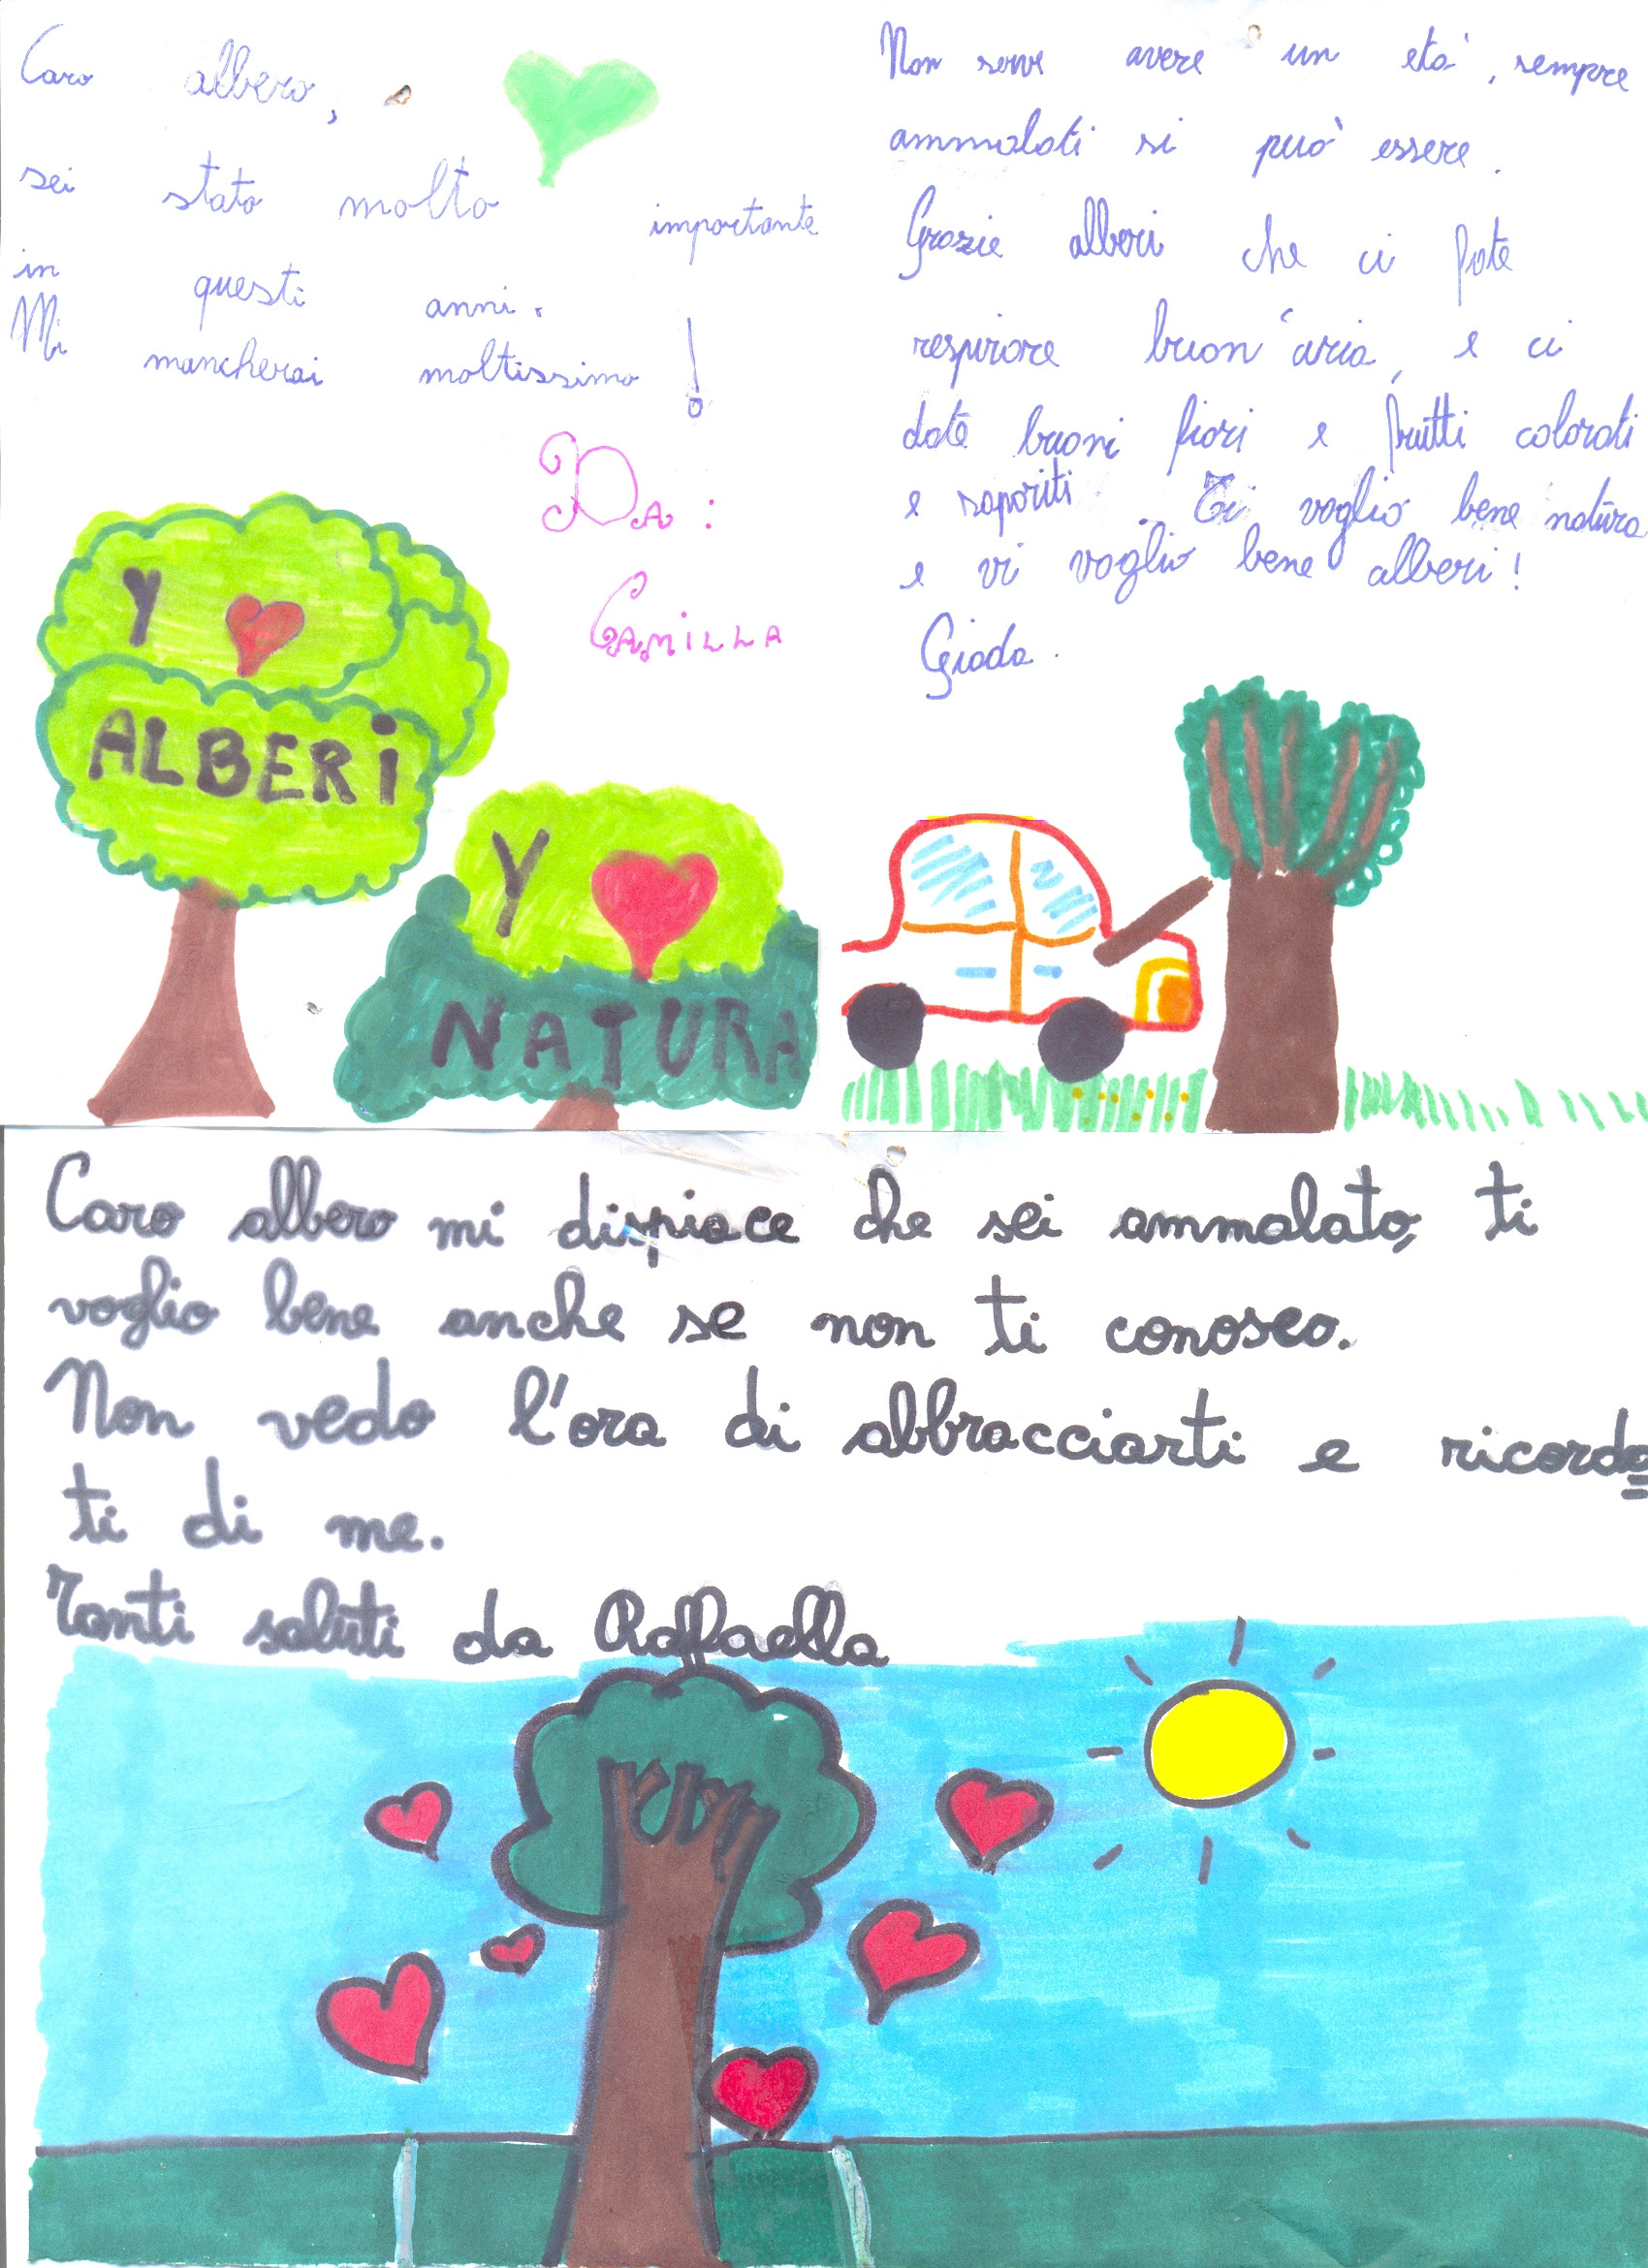 Caro albero,
sei stato molto importante
in questi anni.
Mi mancherai moltissimo!
DA:
CAMILLA
Y
ALBERI
Y
NATURA
Non serve avere un età, sempre
ammalati si può essere.
Grazie alberi che ci fate
respirare buon'aria, e ci
date buoni fiori e frutti colorati
e saporiti. Ti voglio bene natura
e vi voglio bene alberi!
Giada.
Caro albero mi dispiace che sei ammalato, ti
voglio bene anche se non ti conosco.
Non vedo l'ora di abbracciarti e ricorda
ti di me.
Tanti saluti da Raffaella